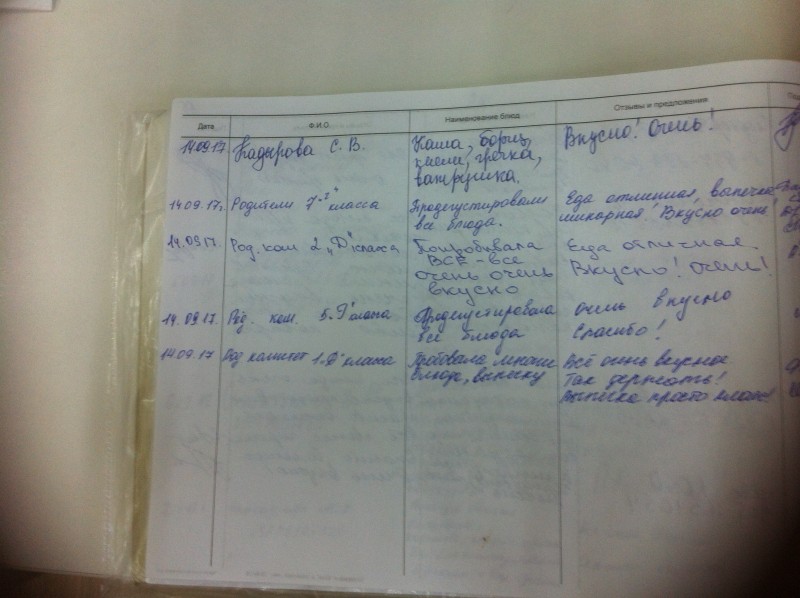 Дата Ф.И.О. Наименование блюд Отзывы и предложения
14.09.17. Кадырова С. В. Каша, борщ, Вкусно! Очень!
гречка,
ватрушка.
14.09.17г. Родители 7 "Г" класса Продегустировали Еда отличная, выпечка
все блюда. шикарная! Вкусно очень!
14.09.17. Род. ком 2 "Д" класса Попробывала Еда отличная.
ВСЁ - все Вкусно! Очень!
очень очень
вкусно
14.09.17. Род. ком. 5 "Г" класса Продегустировала очень вкусно
все блюда Спасибо!
14.09.17 Род комитет 1 "Д" класса Пробовала многие Всё очень вкусное
блюда, выпечку Так держать!
Выпечка просто класс!